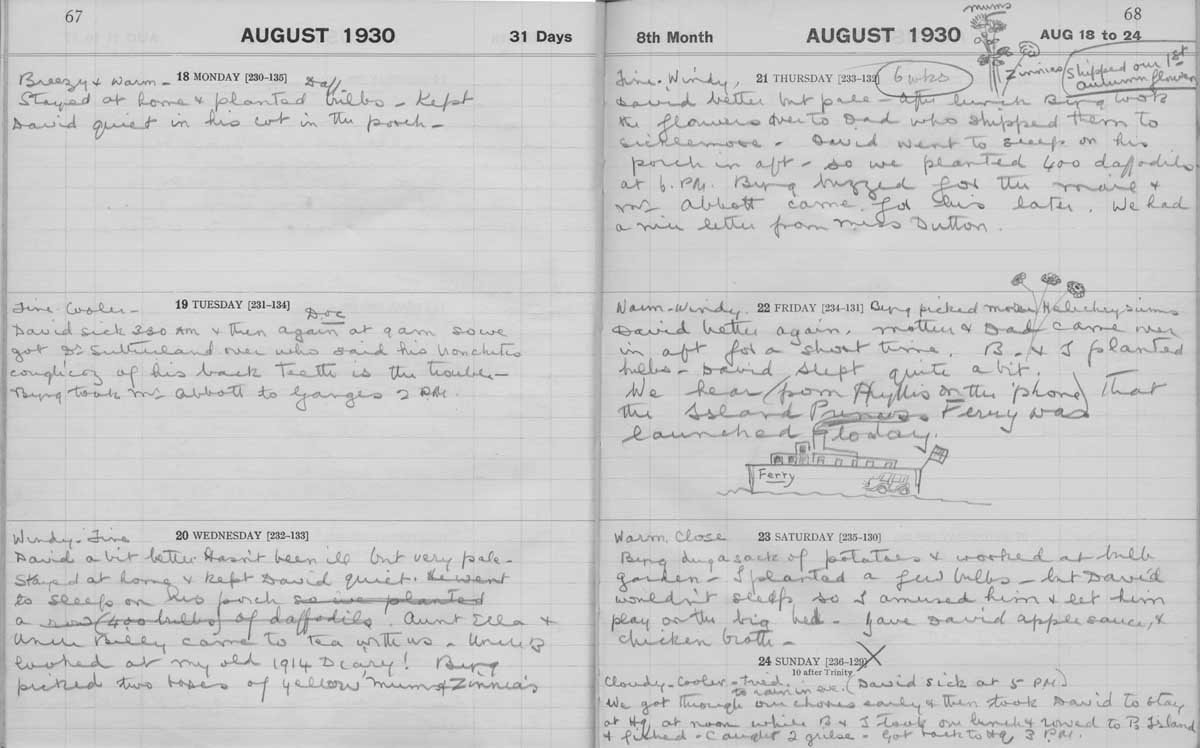 67
AUGUST 1930
31 Days
18 MONDAY [230-135]
Breezy & Warm - Daff.
Stayed at home & planted bulbs - Kept
David quiet in his cot in the porch -
19 TUESDAY [231-134]
Fine. Cooler - Doc
David sick 330 AM & then again at 9 am so we
got Dr Sutherland over who said his bronchitis
of his back teeth is the trouble -
Byng took Mr Abbott to Ganges 2 PM.
20 WEDNESDAY [232-133]
Windy - Fine
David a bit better. Hasn't been ill but very pale -
Stayed at home & kept David quiet. He went
to sleep on his porch so we planted
a row (400 bulbs) of daffodils. Aunt Ella &
Uncle Billy came to tea with us - Uncle B
looked at my old 1914 Diary! Byng
picked two boxes of yellow 'mums & Zinnia's
68
8th Month
AUGUST 1930
AUG 18 to 24
mums
Zinnias
Shipped our 1st
autumn flowers
21 THURSDAY [233-132]
6 wks
Fine. Windy,
David better but pale - After lunch Byng took
the flowers over to Dad who shipped them to
Sicklemore - David went to sleep on his
porch in aft - so we planted 400 daffodils
at 6. PM. Byng buzzed for the mail &
Mr Abbott came for his later. We had
a nice letter from Miss Dutton.
22 FRIDAY [234-131]
Warm - Windy. Byng picked more Helichrysums
David better again. Mother & Dad came over
in aft for a short time. B. & I planted
bulbs - David slept quite a bit.
We hear (from Phyllis on the 'phone) That
the Island Princess Ferry was
launched today.
Ferry
23 SATURDAY [235-130]
Warm. Close
Byng dug a sack of potatoes & worked at bulb
garden - I planted a few bulbs - but David
wouldn't sleep so I amused him & let him
play on the big bed - Gave David apple sauce, &
chicken broth -
24 SUNDAY [236-129]
10 after Trinity
Cloudy - Cooler - Tried (David sick at 5 PM)
to rain in eve.
We got through our chores early & then took David to stay
at Hq at noon while B & I took our lunch & rowed to B Island
& fished - Caught 2 grilse - Got back to Hq 3 PM.